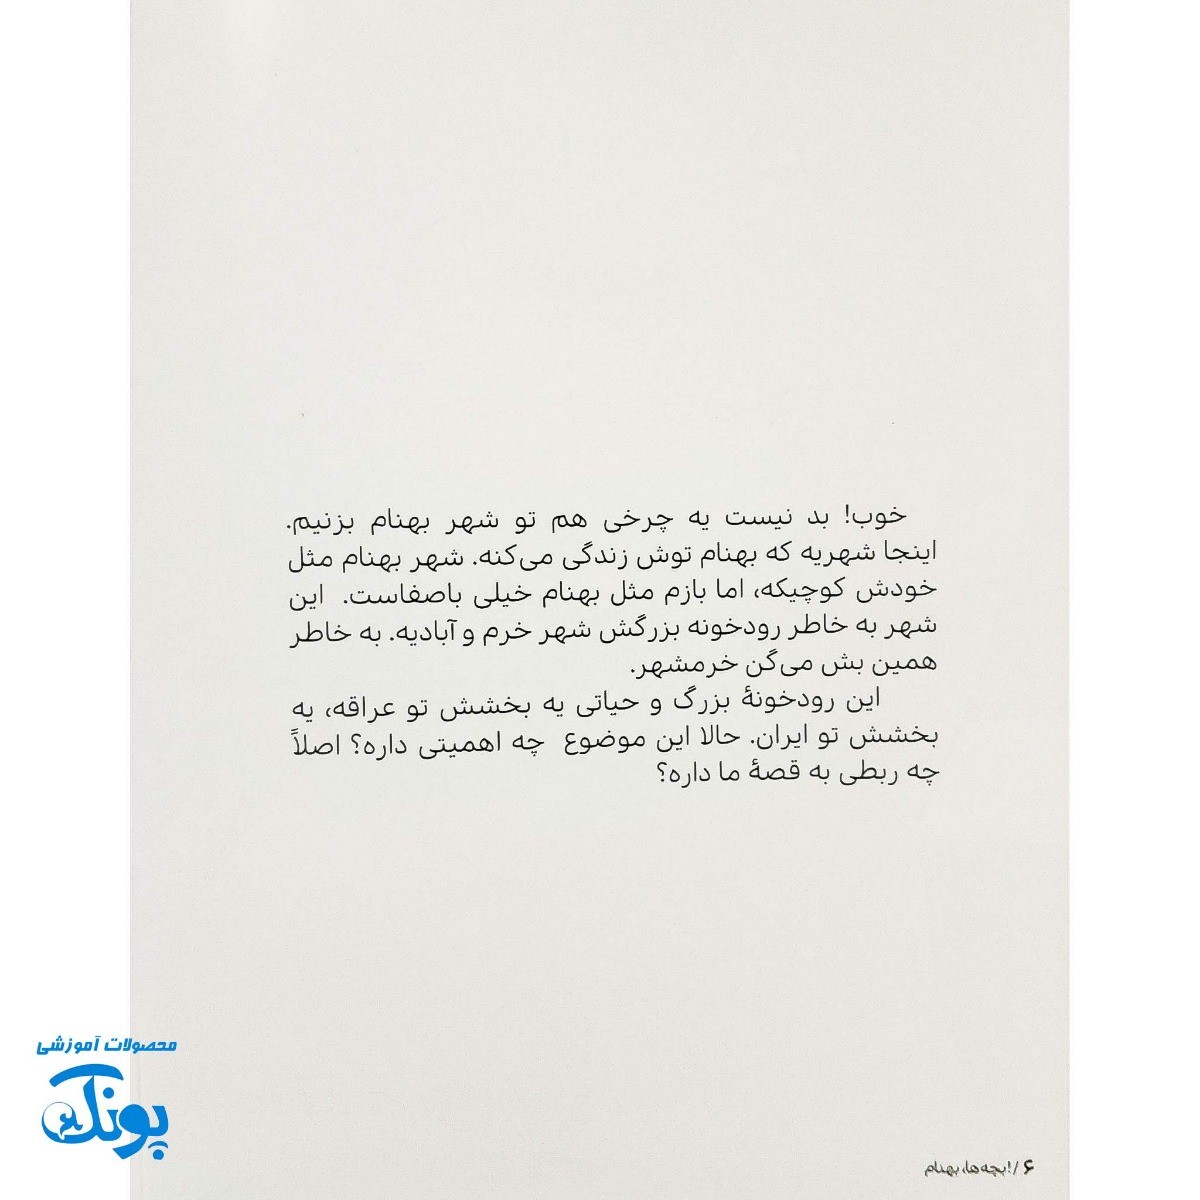 خوب! بد نیست یه چرخی هم تو شهر بهنام بزنیم.
اینجا شهریه که بهنام توش زندگی می‌کنه. شهر بهنام مثل
خودش کوچیکه، اما بازم مثل بهنام خیلی باصفاست. این
شهر به خاطر رودخونه بزرگش شهر خرم و آبادیه. به خاطر
همین بش می‌گن خرمشهر.
این رودخونهٔ بزرگ و حیاتی یه بخشش تو عراقه، یه
بخشش تو ایران. حالا این موضوع چه اهمیتی داره؟ اصلاً
چه ربطی به قصهٔ ما داره؟
محصولات آموزشی
پونک
۶ / !بچه‌ها، بهنام